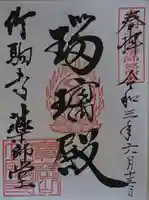 奉拝
令和三年六月十三日
瑠璃殿
竹駒寺薬師堂